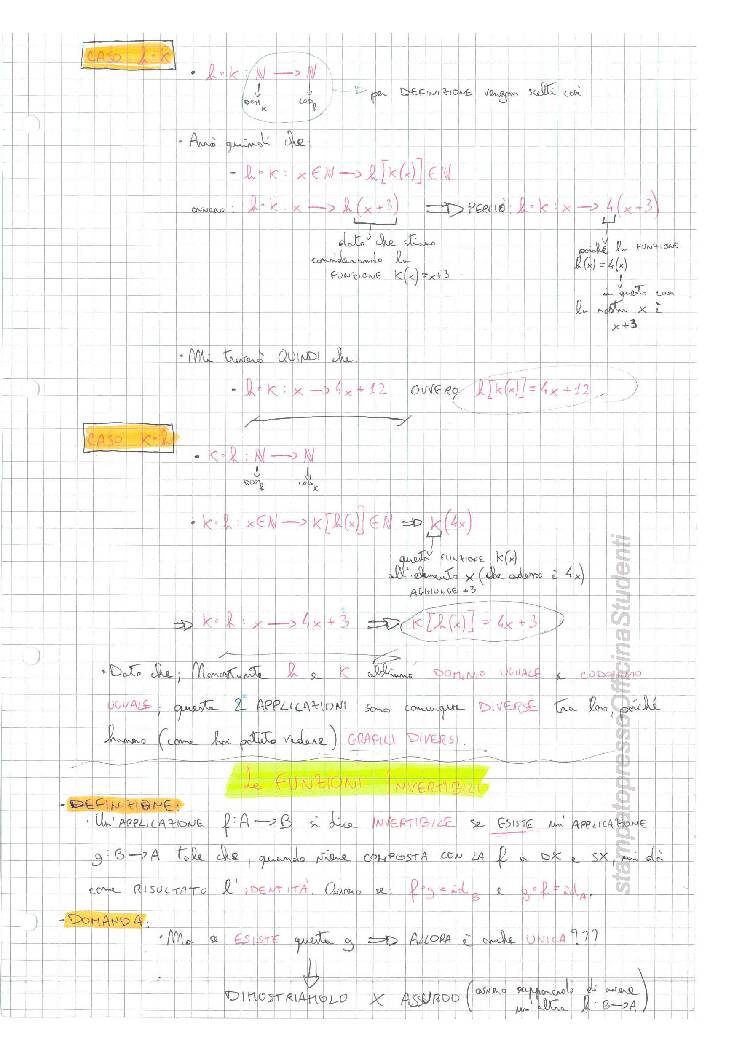 CASO h∘k
• h∘k : ℕ → ℕ
DOM_K COD_h → per DEFINIZIONE vengon scelti così
• Avrò quindi che:
- h∘k : x∈ℕ → h[k(x)]∈ℕ
ovvero: h∘k : x → h(x+3) ⇒ PERCIÒ: h∘k : x → 4(x+3)
dato che stiamo
considerando la
FUNZIONE K(x)=x+3
poiché la FUNZIONE
h(x)=4(x)
e questo caso
la nostra x è
x+3
• Mi troverò QUINDI che
• h∘k : x → 4x+12 OVVERO h[k(x)]=4x+12
CASO k∘h
• k∘h : ℕ → ℕ
DOM_h COD_K
• k∘h : x∈ℕ → k[h(x)]∈ℕ ⇒ k(4x)
questa FUNZIONE K(x)
all'elemento x (che adesso è 4x)
AGGIUNGE +3
⇒ k∘h : x → 4x+3 ⇒ k[h(x)] = 4x+3
• Dato che; Nonostante h e k abbiano DOMINIO UGUALE e CODOMINIO
UGUALE; queste 2 APPLICAZIONI sono comunque DIVERSE tra loro, poiché
hanno (come hai potuto vedere) GRAFICI DIVERSI.
Le FUNZIONI INVERTIBILI
• DEFINIZIONE:
• Un'APPLICAZIONE f:A→B si dice INVERTIBILE se ESISTE un'APPLICAZIONE
g:B→A tale che, quando viene COMPOSTA CON LA f a DX e SX, mi dà
come RISULTATO l'IDENTITÀ. Ovvero se: f∘g=id_B e g∘f=id_A.
• DOMANDA:
• Ma se ESISTE questa g ⇒ ALLORA è anche UNICA???
DIMOSTRIAMOLO X ASSURDO (ovvero supponendo di avere
un'altra h:B→A)
stampato presso OfficinaStudenti